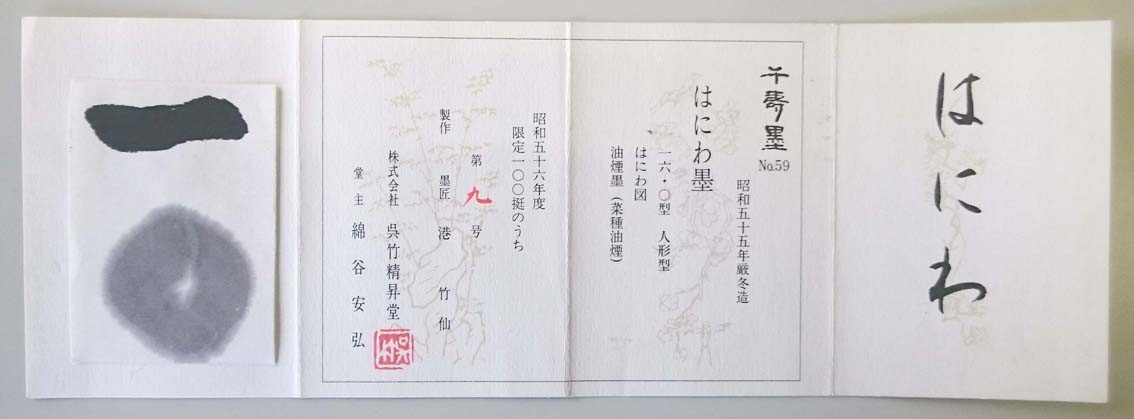 はにわ
千壽墨
No.59
昭和五十五年厳冬造
はにわ墨
一六・〇型 人形型
はにわ図
油煙墨(菜種油煙)
昭和五十六年度
限定一〇〇挺のうち
第九号
製作 墨匠 港 竹仙
株式会社 呉竹精昇堂
堂主 綿谷安弘
呉竹